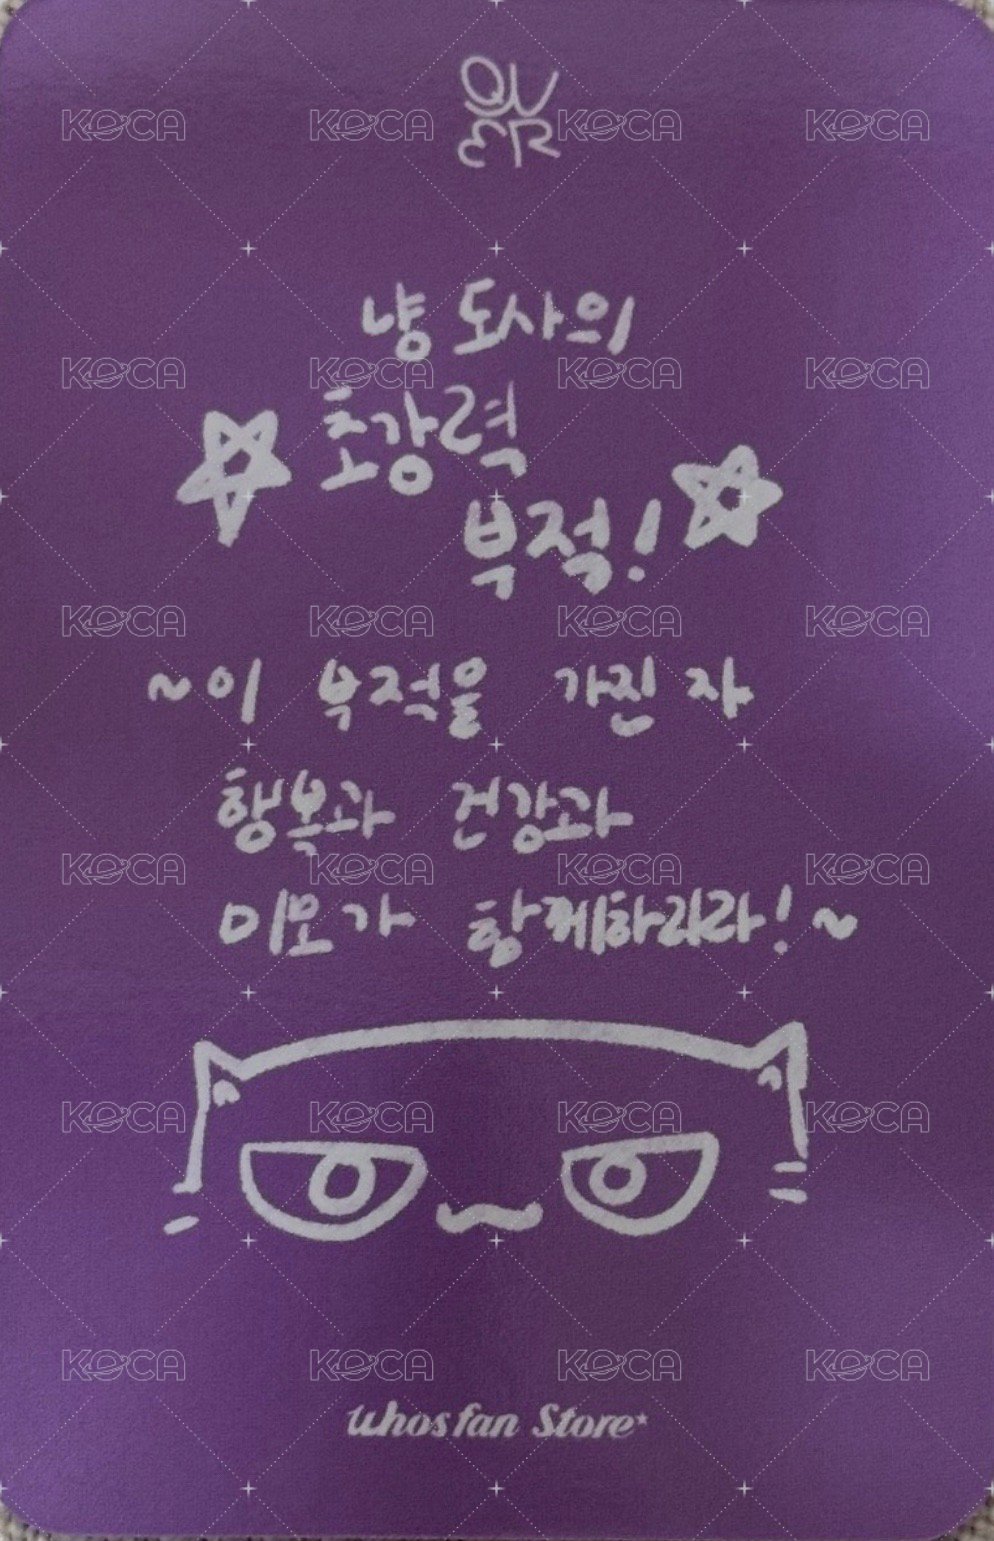 QW
ER
KOCA KOCA KOCA KOCA
냥도사의
KOCA KOCA KOCA KOCA
☆초강력
부적!☆
KOCA KOCA KOCA KOCA
~이 부적을 가진 자
행복과 건강과
KOCA KOCA KOCA KOCA
미모가 함께하리라!~
KOCA KOCA KOCA KOCA
KOCA KOCA KOCA KOCA
Whosfan Store*